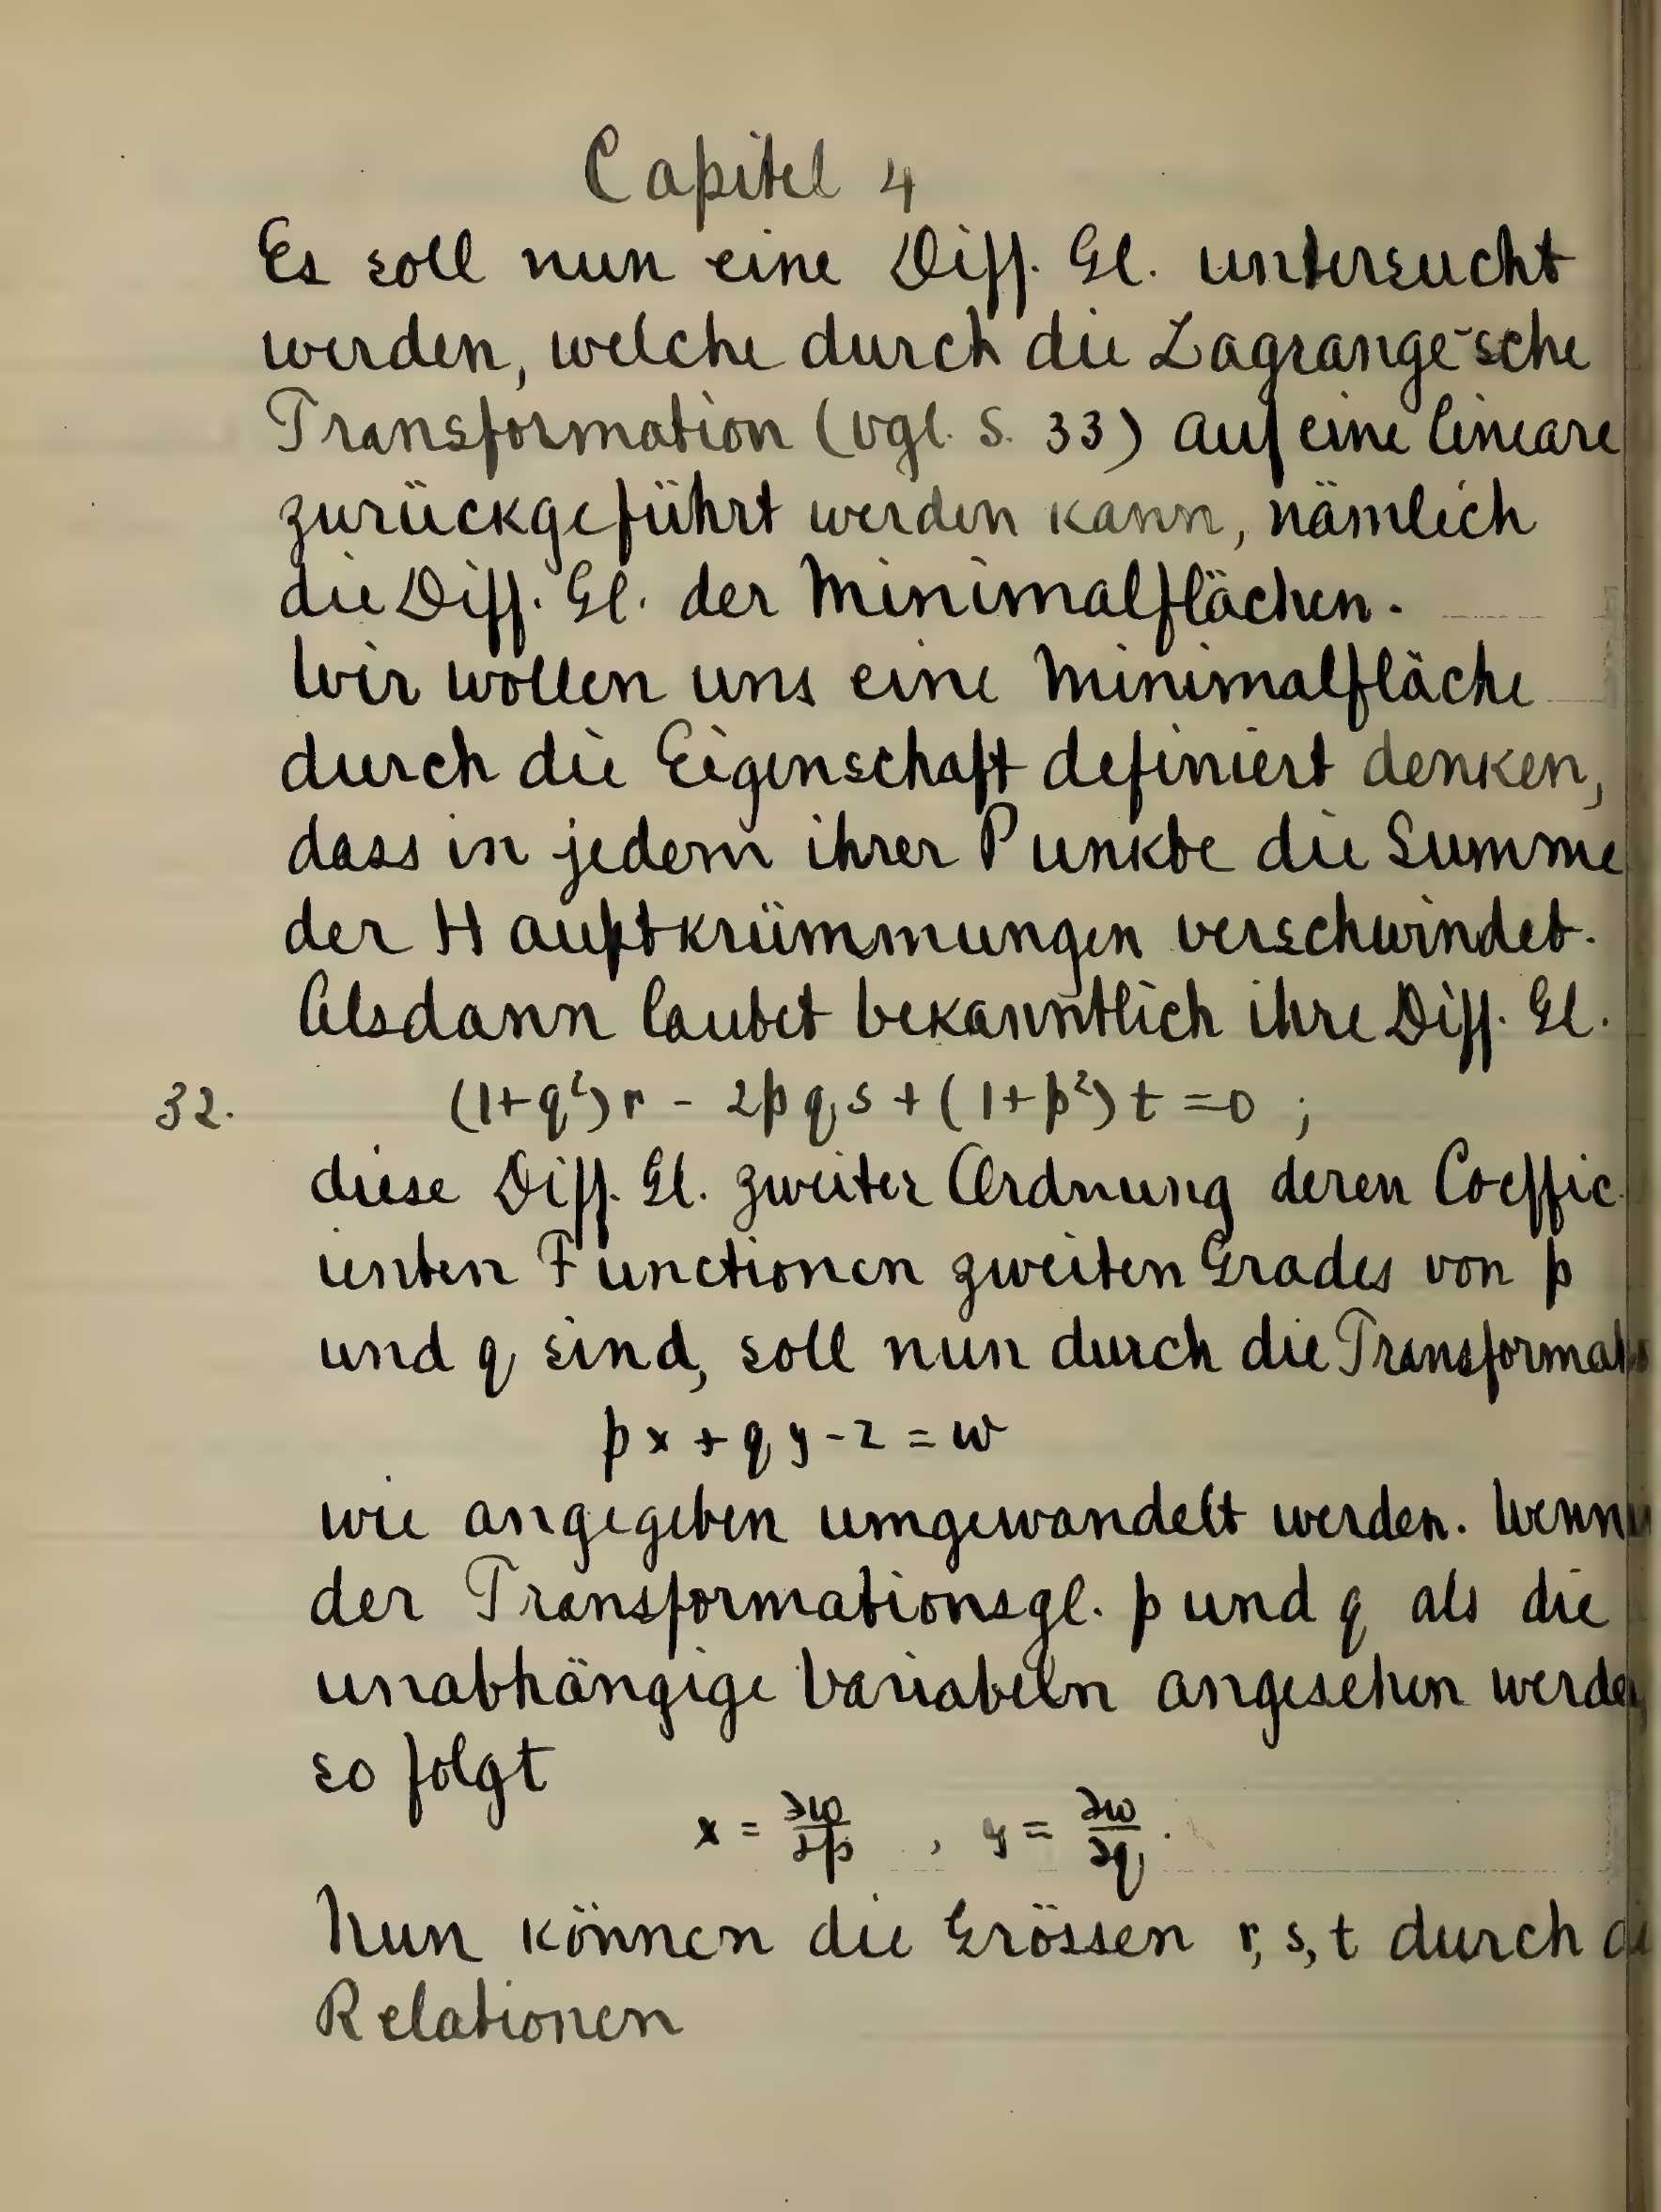 Capitel 4
Es soll nun eine Diff. Gl. untersucht
werden, welche durch die Lagrange'sche
Transformation (vgl. S. 33) auf eine lineare
zurückgeführt werden kann, nämlich
die Diff. Gl. der Minimalflächen.
Wir wollen uns eine Minimalfläche
durch die Eigenschaft definiert denken,
dass in jedem ihrer Punkte die Summe
der Hauptkrümmungen verschwindet.
Alsdann lautet bekanntlich ihre Diff. Gl.
32. (1+q²)r - 2pqs + (1+p²)t = 0 ;
diese Diff. Gl. zweiter Ordnung deren Coeffic
ienten Functionen zweiten Grades von p
und q sind, soll nun durch die Transformatio
px + qy - z = w
wie angegeben umgewandelt werden. Wenn
der Transformationsgl. p und q als die
unabhängige Variabeln angesehen werde
so folgt
x = ∂w/∂p , y = ∂w/∂q .
Nun können die Grössen r, s, t durch di
Relationen